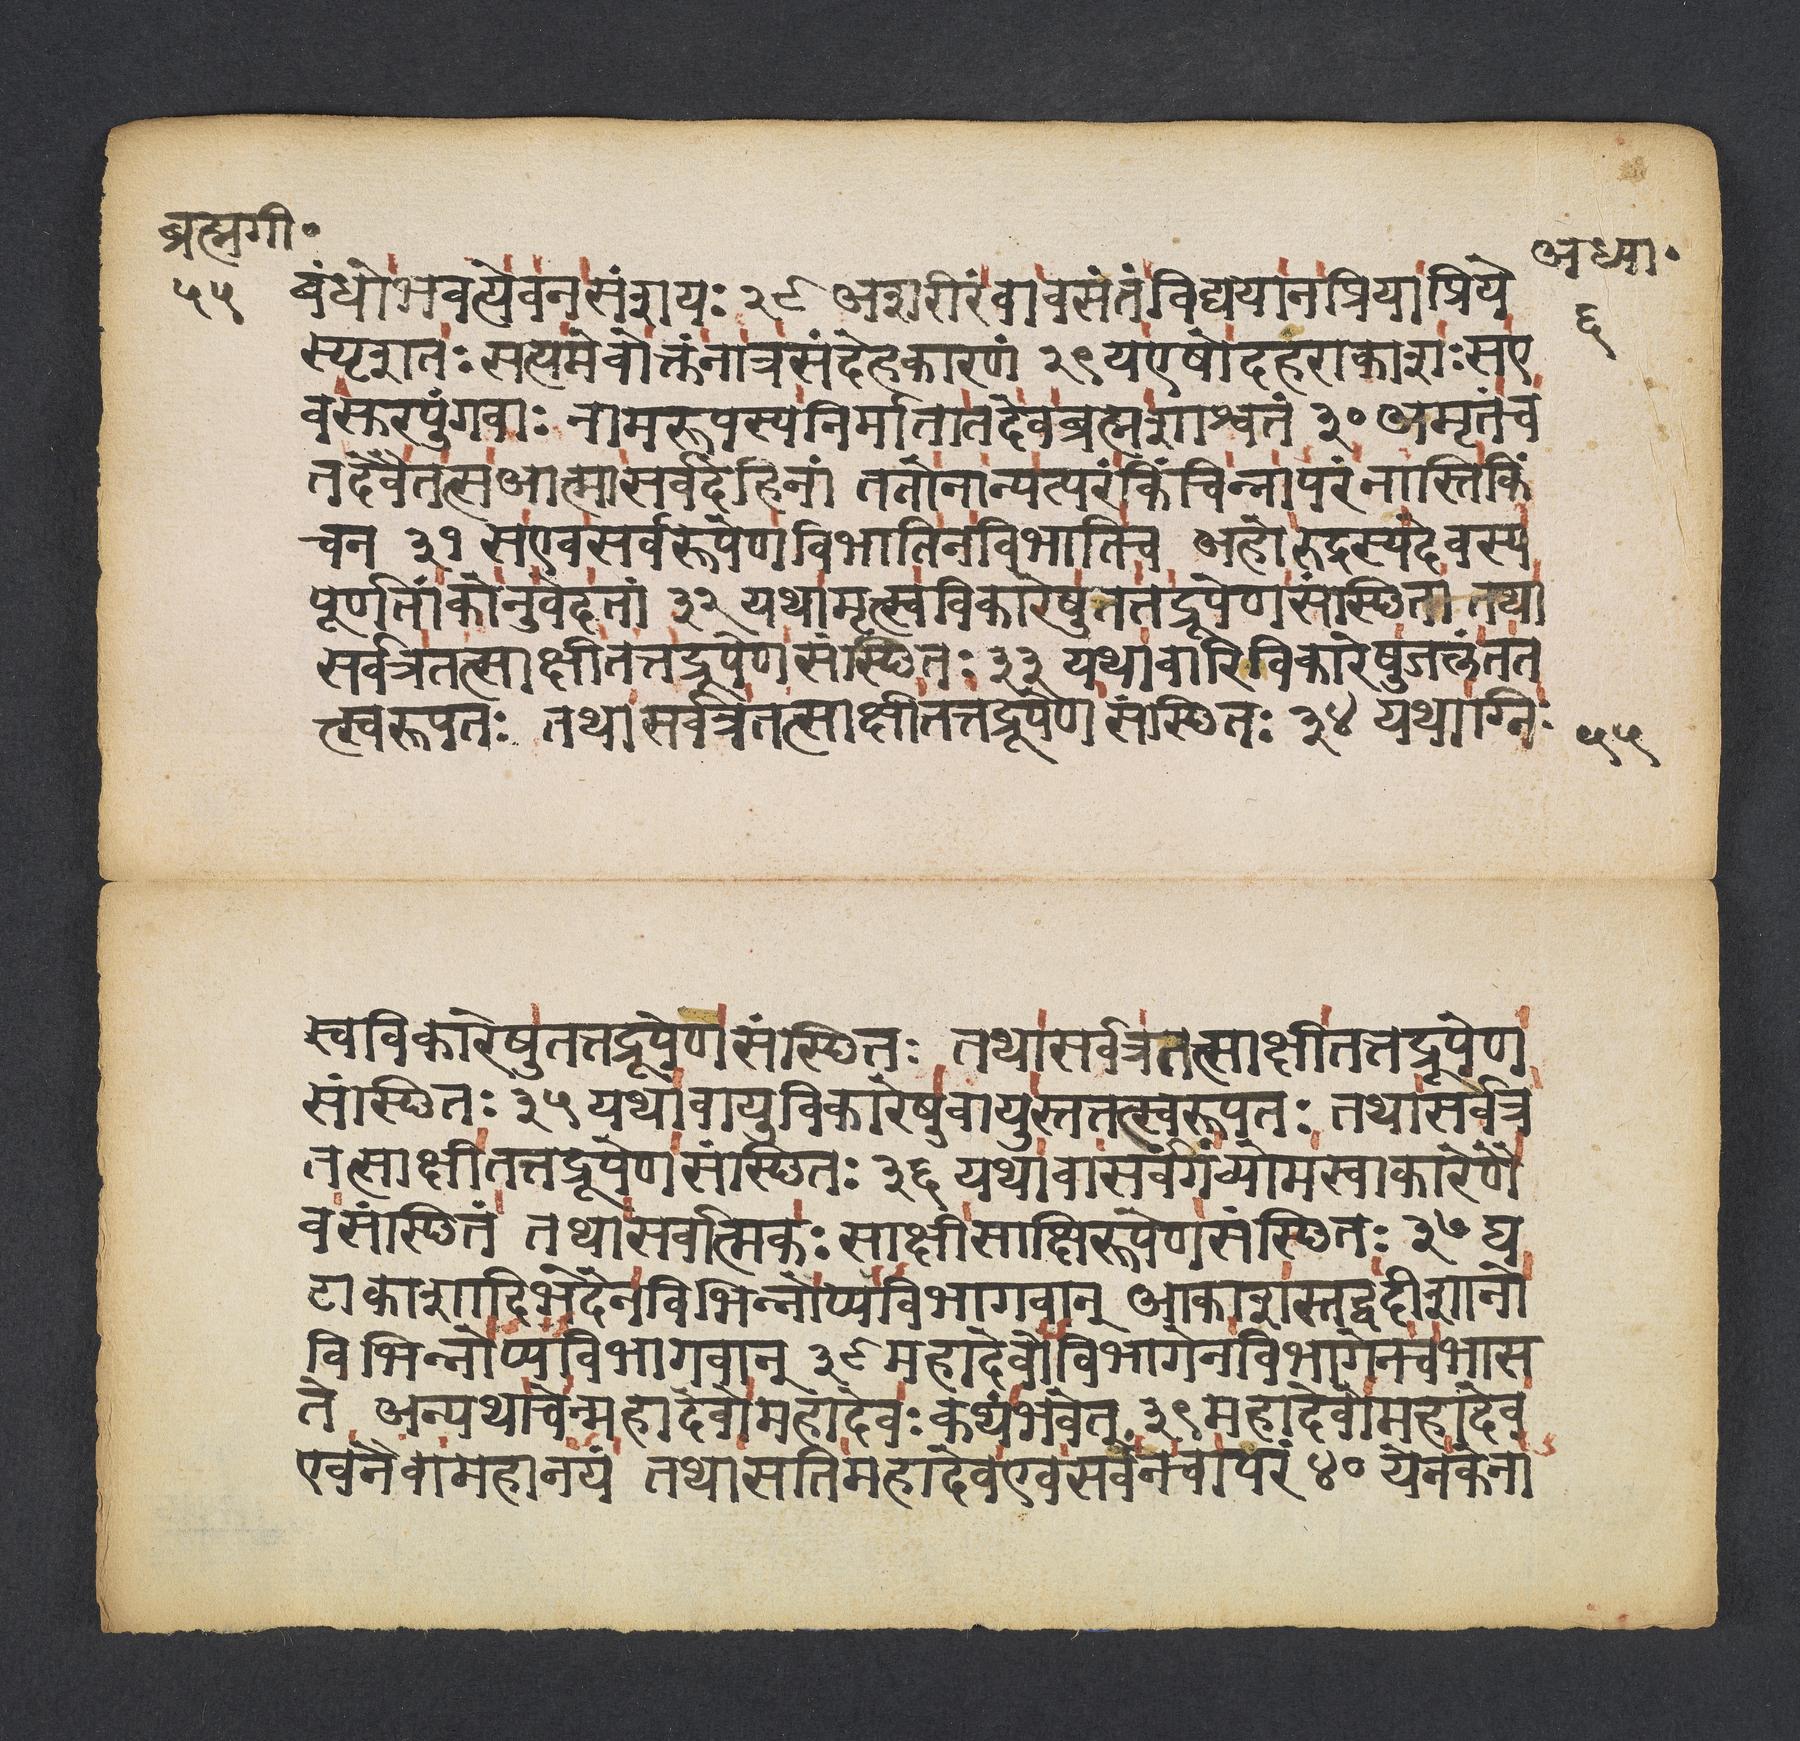 ब्रह्मगी॰
५५
अध्या॰
६
बंधोभवत्येवनसंशयः २८ अशरीरंवावसंतंविद्ययानप्रियाप्रिये
स्पृशतः सत्यमेवोक्तंनात्रसंदेहकारणं २९ यएषोदहराकाशः सए
वसुरपुंगवाः नामरूपस्यनिर्मातातदेवब्रह्मशाश्वतं ३० अमृतंच
तदेवैतत्सआत्मासर्वदेहिनां ततोनान्यत्परंकिंचिन्नापरंनास्तिकिं
चन ३१ सएवसर्वरूपेणविभातिनविभातिच अहोरुद्रस्यदेवस्य
पूर्णतांकोनुवेदतां ३२ यथामृत्स्वविकारेषुतत्तद्रूपेणसंस्थिता तथा
सर्वत्रतत्साक्षीतत्तद्रूपेणसंस्थितः ३३ यथावारिविकारेषुजलंतत
त्स्वरूपतः तथासर्वत्रतत्साक्षीतत्तद्रूपेणसंस्थितः ३४ यथाग्निः
५५
स्वविकारेषुतत्तद्रूपेणसंस्थितः तथासर्वत्रतत्साक्षीतत्तद्रूपेण
संस्थितः ३५ यथावायुविकारेषुवायुस्तत्तत्स्वरूपतः तथासर्वत्र
तत्साक्षीतत्तद्रूपेणसंस्थितः ३६ यथावासर्वगंव्योमस्वाकारेणै
वसंस्थितं तथासर्वात्मकः साक्षीसाक्षिरूपेणसंस्थितः ३७ घ
टाकाशादिभेदेनविभिन्नोप्यविभागवान् आकाशस्तद्वदीशानो
विभिन्नोप्यविभागवान् ३८ महादेवोविभागेनविभागेनचभास
ते अन्यथाचेन्महादेवोमहादेवः कथंभवेत् ३९ महादेवोमहादेव
एवनैवामहानयं तथासतिमहादेवएवसर्वंनचापरं ४० येनकेना